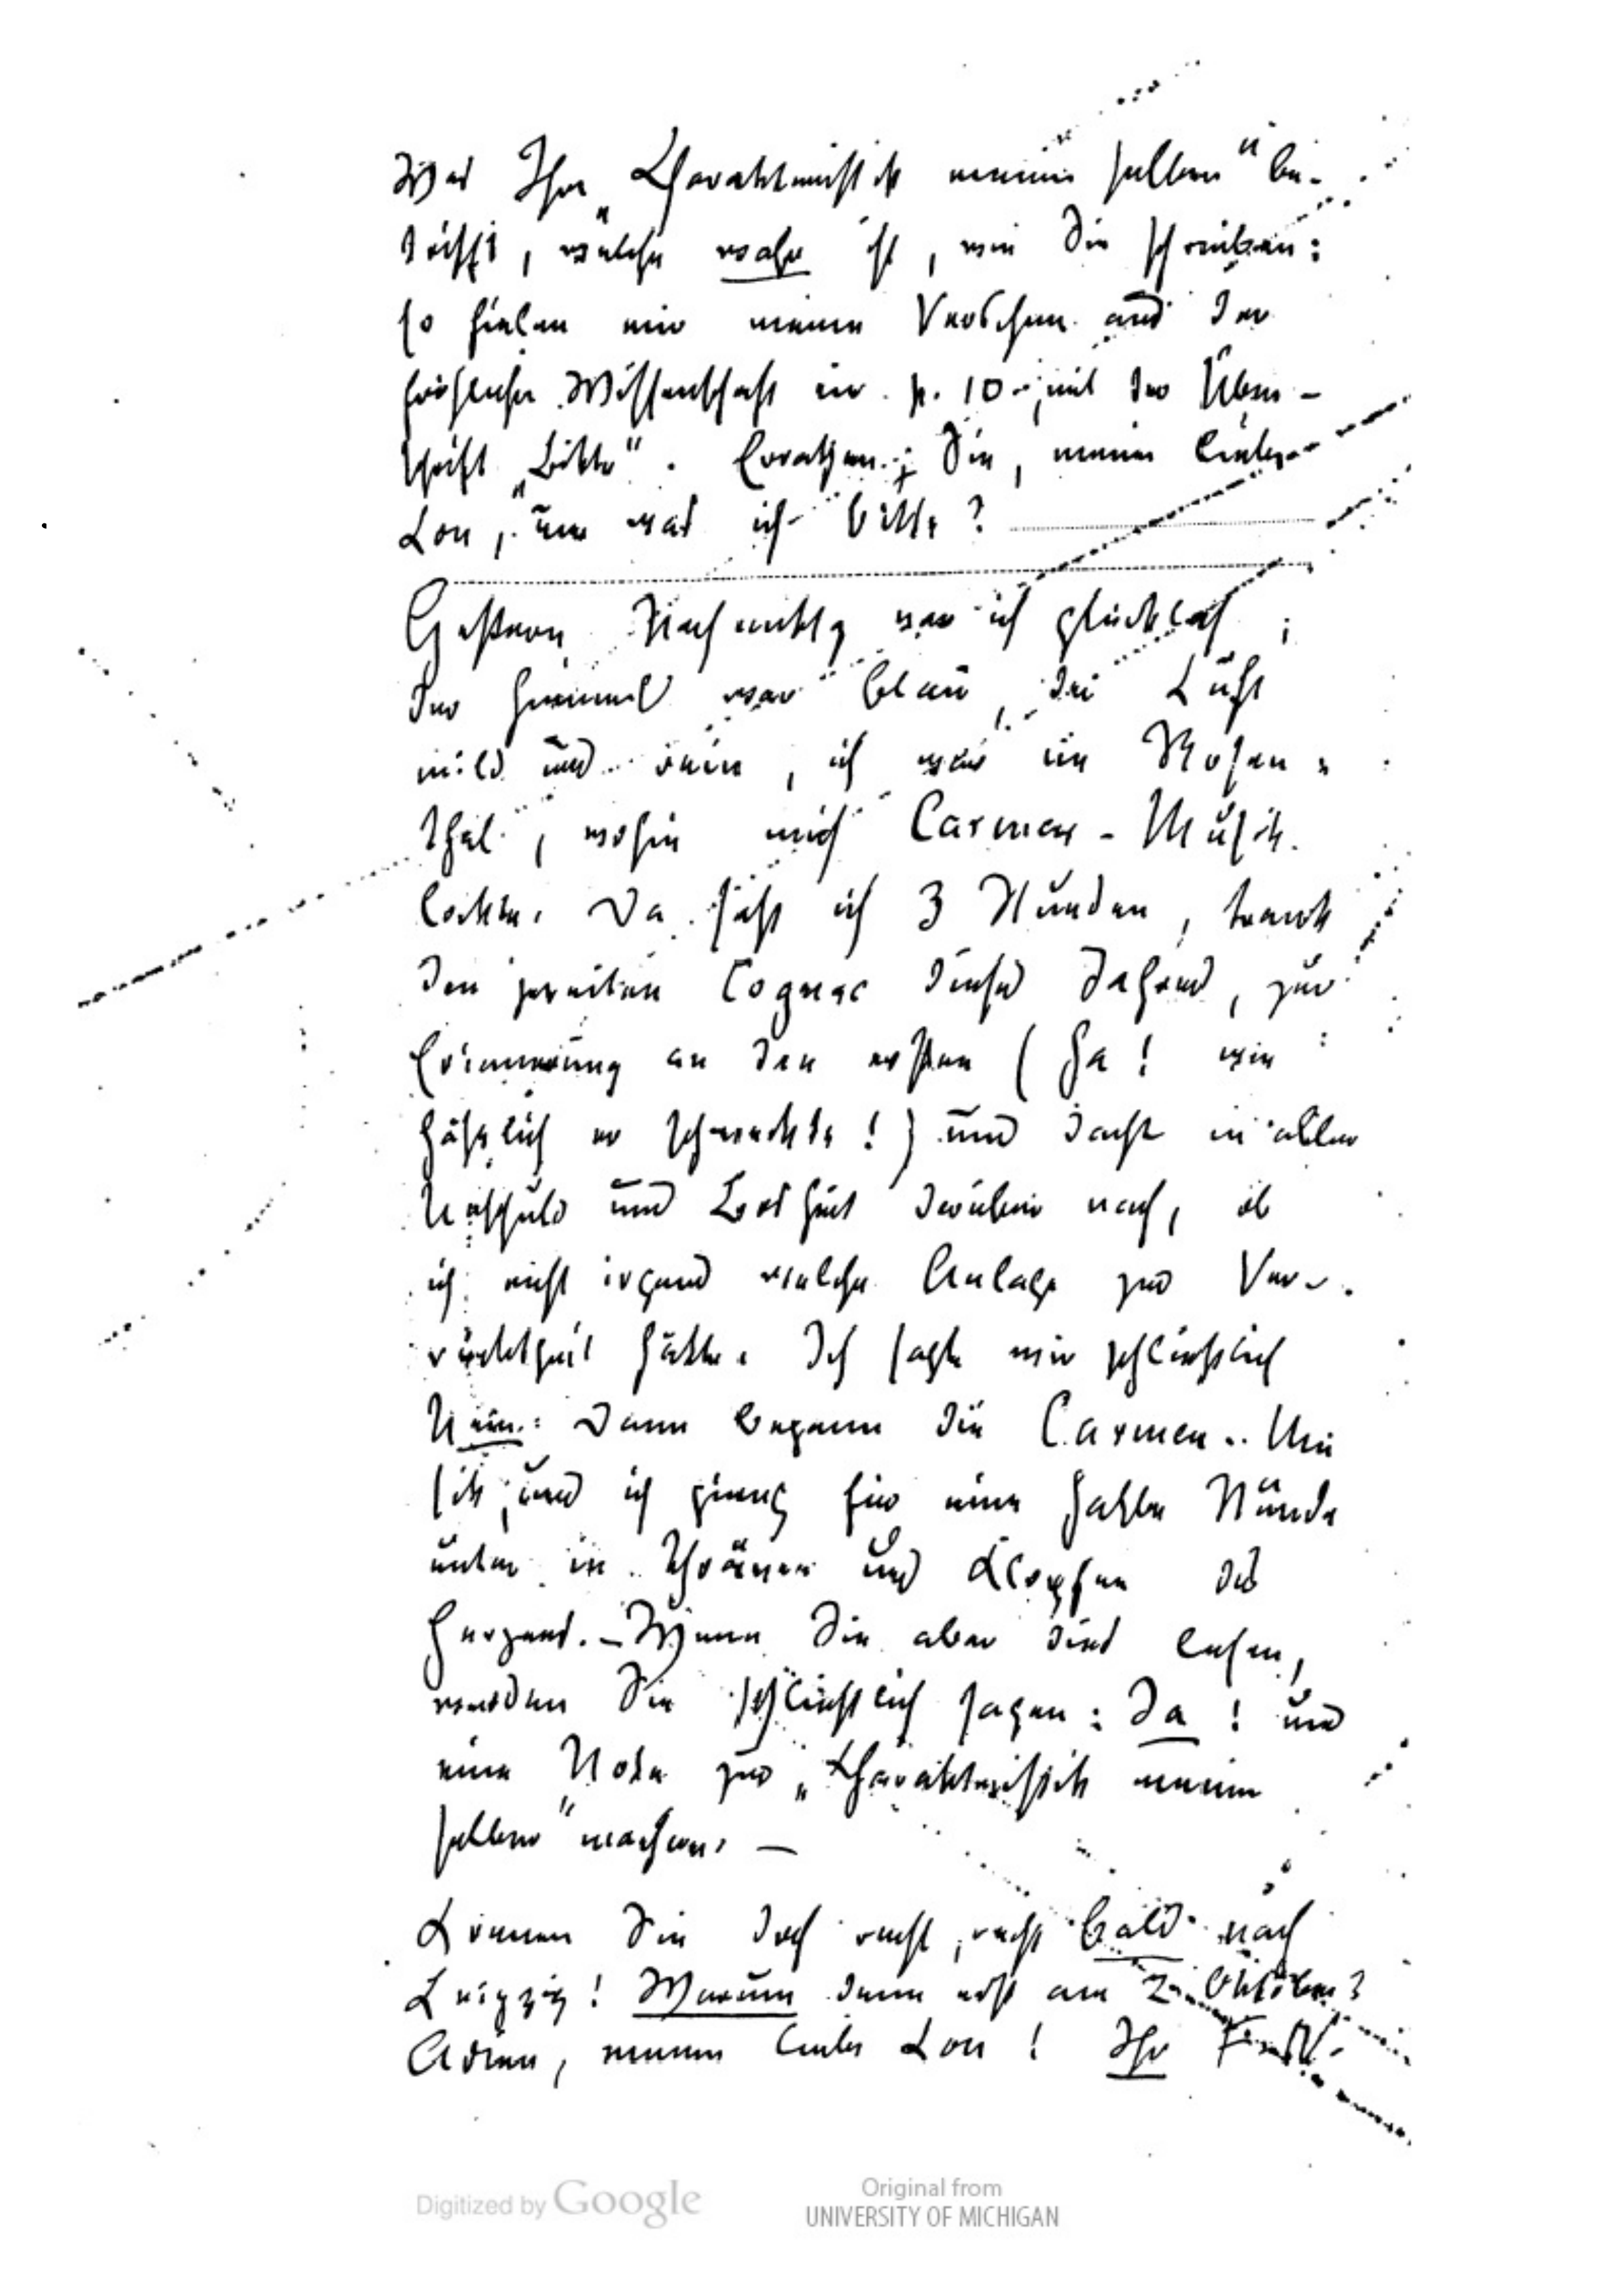 Was Ihre „Charakteristik meiner selber“ be-
trifft, welche wahr ist, wie Sie schreiben:
so fielen mir meine Verschen aus der
fröhlichen Wissenschaft ein p. 10 mit der Über-
schrift „Bitte“. Errathen Sie, meine liebe
Lou, um was ich bitte?
Gestern Nachmittag war ich glücklich;
der Himmel war blau, die Luft
mild und rein, ich war im Rosen-
thal, wohin mich Carmen-Musik
lockte. Da saß ich 3 Stunden, trank
den zweiten Cognac dieses Jahres, zur
Erinnerung an den ersten (ha! wie
häßlich er schmeckte!) und dachte in aller
Unschuld und Bosheit darüber nach, ob
ich nicht irgend welche Anlage zur Ver-
rücktheit hätte. Ich sagte mir schließlich
Nein. Dann begann die Carmen-Mu
sik, und ich gieng für eine halbe Stunde
unter in Thränen und Klopfen des
Herzens. – Wenn Sie aber dies lesen,
werden Sie schließlich sagen: Ja! und
eine Note zur „Charakteristik meiner
selber“ machen. —
Kommen Sie doch recht, recht bald nach
Leipzig! Warum denn erst am 2. Oktober?
Adieu, meine liebe Lou! Ihr F. N.
Digitized by Google
Original from
UNIVERSITY OF MICHIGAN